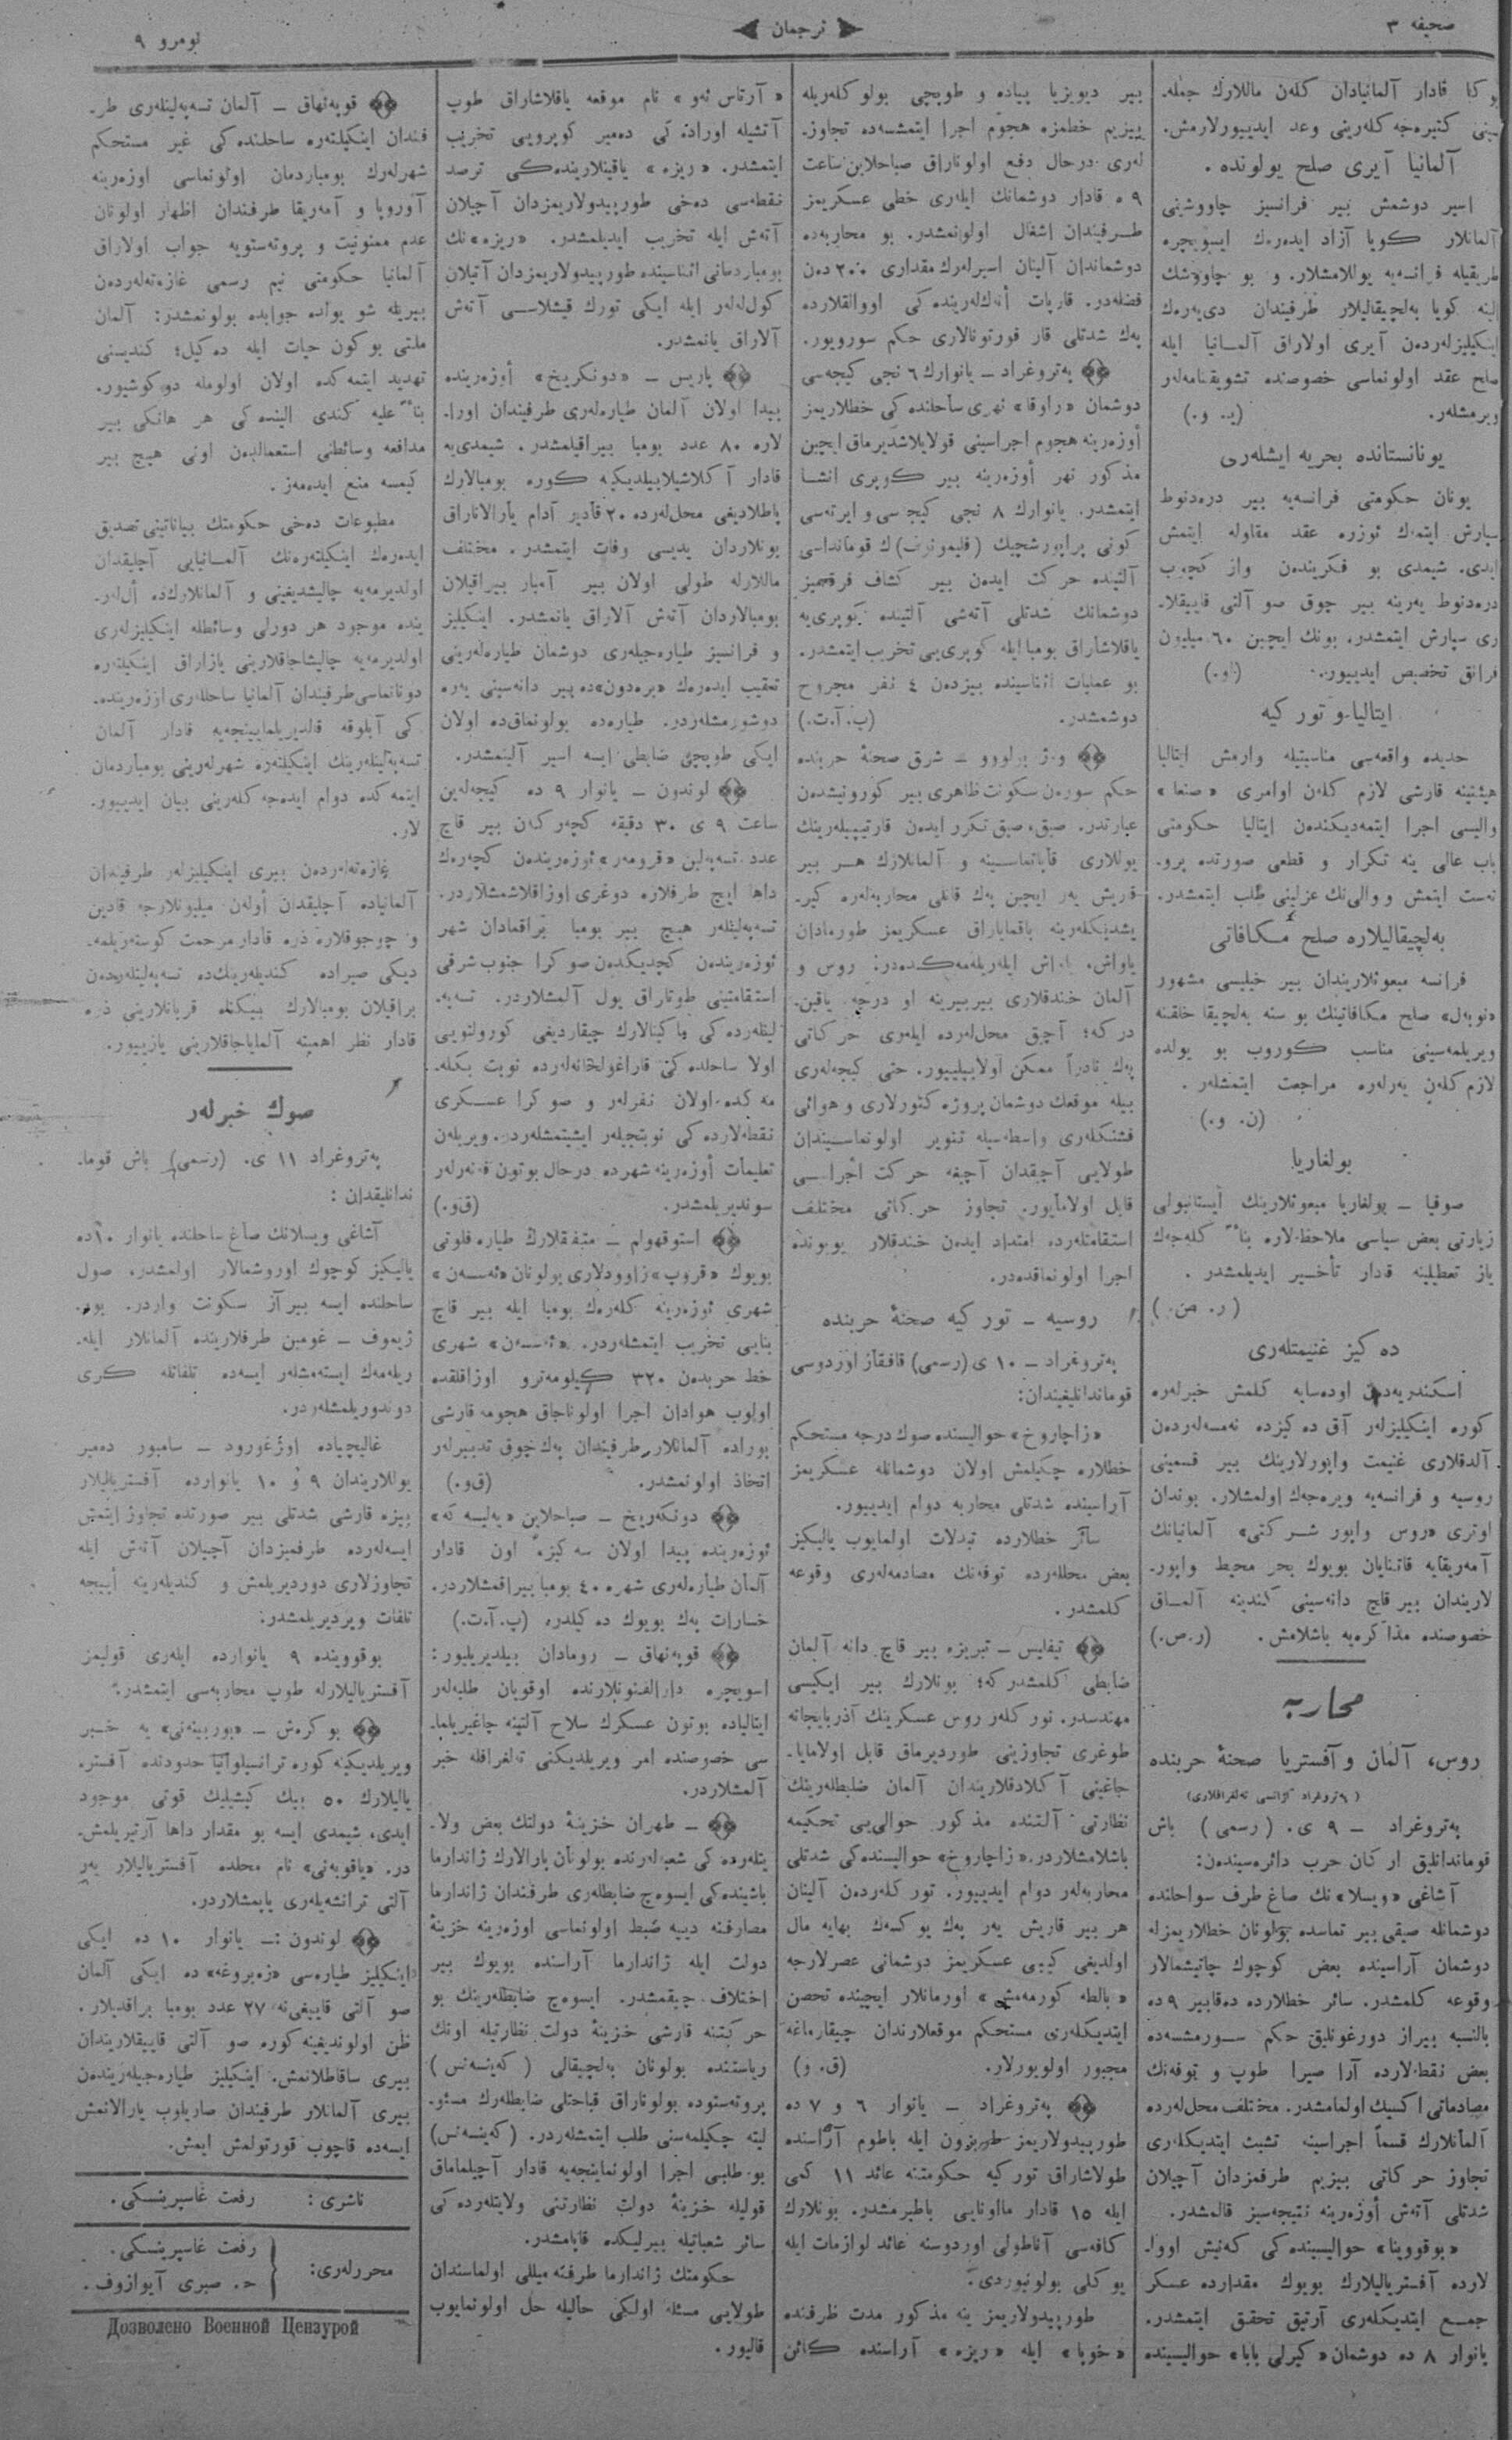 صحیفه ۳
ترجمان
نومرو ۹
بوكا قادار آلمانیادان كلەن ماللارك جمله‌
سینی كتیره‌جه‌كلەرینی وعد ایدییورلارمش.
آلمانیا آیری صلح یولونده .
اسیر دوشمش بیر فرانسیز چاووشینی
آلمانلار كویا آزاد ایده‌رك ایسویچره
طریقیله فرانسه‌یه یوللامشلار. و بو چاووشك
الینه كویا به‌لچیقالیلار طرفیندان دی‌یه‌رك
اینكیلیزله‌ردن آیری اولاراق آلمانیا ایله
صلح عقد اولونماسی خصوصنده تشویقنامه‌لر
ویرمشله‌ر. (ید. و.)
یونانستانده بحریه ایشله‌ری
یونان حكومتی فرانسه‌یه بیر دره‌دنوط
سپارش ایتمك ئوزره عقد مقاوله ایتمش
ایدی. شیمدی بو فكریندەن واز كچوب
دره‌دنوط یه‌رینه بیر چوق صو آلتی قاییقلا-
ری سپارش ایتمشدر. بونك ایچین ٦٠ میلیون
فرانق تخصیص ایدییور.
ایتالیا و توركیه
حدیده واقعه‌سی مناسبتیله وارمش ایتالیا
هیئتینه قارشی لازم كلەن اوامری «صنعا»
والیسی اجرا ایتمه‌دیكندەن ایتالیا حكومتی
باب عالی ینه تكرار و قطعی صورتده پرو-
تست ایتمش و والی‌نك عزلینی طلب ایتمشدر.
به‌لچیقالیلاره صلح مكافاتی
فرانسه مبعوثلاریندان بیر خیلیسی مشهور
«نوبه‌ل» صلح مكافاتینك بو سنه به‌لچیقا خلقنه
ویریلمه‌سینی مناسب كوروب بو یولده
لازم كلەن یه‌رله‌ره مراجعت ایتمشله‌ر .
(ن. و.)
بولغاریا
صوفیا – بولغاریا مبعوثلارینك ایستانبولی
زیارتی بعض سیاسی ملاحظه‌لاره بناءً كله‌جه‌ك
یاز تعطیلینه قادار تأخیر ایدیلمشدر .
(ر. ص.)
ده‌كیز غنیمتله‌ری
اسكندریه‌دەن اوده‌سایه كلمش خبرله‌ره
كوره اینكیلیزله‌ر آق ده‌كیزده نه‌مسه‌له‌ردەن
آلدقلاری غنیمت واپورلارینك بیر قسمینی
روسیه و فرانسه‌یه ویره‌جه‌ك اولمشلار. بوندان
اوتری «روس واپور شركتی» آلمانیانك
آمه‌ریقایه قاتنایان بویوك بحر محیط واپور-
لاریندان بیر قاچ دانه‌سینی كندینه آلماق
خصوصنده مذاكره‌یه باشلامش. (ر.ص.)
محاربه
روس، آلمان و آفستریا صحنهٔ حربنده
(په‌تروغراد آژانسی ته‌لغرافلاری)
په‌تروغراد – ۹ ی. (رسمی) باش
قومانداتلیق اركان حرب دائره‌سیندەن:
آشاغی «ویسلا»نك صاغ طرف سواحلنده
دوشمانله صیقی بیر تماسده بولونان خطلاریمزله
دوشمان آراسینده بعض كوچوك چاتیشمالار
وقوعه كلمشدر. سائر خطلارده ده‌قابیر ۹ ده
بالنسبه بیراز دورغونلیق حكم سورمشسه‌ده
بعض نقطه‌لارده آرا صیرا طوپ و توفه‌نك
مصادماتی اكسیك اولمامشدر. مختلف محل‌له‌رده
آلمانلارك قسماً اجراسینه تشبث ایتدیكله‌ری
تجاوز حركاتی بیزیم طرفمزدان آچیلان
شدتلی آتەش أوزه‌رینه نتیجه‌سیز قالمشدر.
«بوقووینا» حوالیسینده‌كی كه‌نیش اووا-
لارده آفستریالیلارك بویوك مقدارده عسكر
جمع ایتدیكله‌ری آرتیق تحقق ایتمشدر.
یانوار ۸ ده دوشمان «كیرلی بابا» حوالیسینده
بیر دیویزیا پیاده و طوپچی بولوكله‌ریله
بیزیم خطمزه هجوم اجرا ایتمشسه‌ده تجاوز-
له‌ری درحال دفع اولوناراق صباحلاین ساعت
۹ ه قادار دوشمانك ایله‌ری خطی عسكریمز
طرفیندان اشغال اولونمشدر. بو محاربه‌ده
دوشماندان آلینان اسیرله‌رك مقداری ۲۰۰ دەن
فضله‌در. قارپات أتەك‌له‌رینده‌كی اووالقلارده
په‌ك شدتلی قار فورتونالاری حكم سورییور.
په‌تروغراد – یانوارك ٦ نجی كیجه‌سی
دوشمان «راوقا» نهری ساحلنده‌كی خطلاریمز
أوزه‌رینه هجوم اجراسینی قولایلاشدیرماق ایچین
مذكور نهر أوزه‌رینه بیر كوپری انشا
ایتمشدر. یانوارك ۸ نجی كیجه‌سی و ایرته‌سی
كونی پراپورشچیك (قلیمونوف)ك قومانداسی
آلتینده حركت ایدەن بیر كشاف فرقه‌میز
دوشمانك شدتلی آتەشی آلتینده كوپری‌یه
یاقلاشاراق بومبا ایله كوپری‌یی تخریب ایتمشدر.
بو عملیات اثناسینده بیزدەن ٤ نفر مجروح
دوشمشدر. (پ.آ.ت.)
شرق صحنهٔ حربنده
حكم سورەن سكونت ظاهری بیر كورونیشدەن
عبارتدر. صیق صیق تكرر ایدەن قارتیپیله‌رینك
یوللاری قاپاتماسینه و آلمانلارك هر بیر
قاریش یەر ایچین په‌ك قانلی محاربه‌له‌ره كیر-
یشدیكله‌رینه باقمایاراق عسكریمز طورمادان
یاواش یاواش ایله‌ریله‌مه‌كده‌در: روس و
آلمان خندقلاری بیربیرینه او درجه یاقین-
دركه؛ آچق محل‌له‌رده ایله‌ری حركاتی
په‌ك نادراً ممكن اولابیلییور. حتی كیجه‌له‌ری
بیله موقعك دوشمان پروژه‌كتورلاری و هوائی
فشنكله‌ری واسطه‌سیله تنویر اولونماسیندان
طولایی آچقدان آچیغه حركت اجراسی
قابل اولامایور. تجاوز حركاتی مختلف
استقامتله‌رده امتداد ایدەن خندقلار بویونده
اجرا اولونماقده‌در.
روسیه – توركیه صحنهٔ حربنده
په‌تروغراد – ۱۰ ی (رسمی) قافقاز اوردوسی
قوماندانلیغیندان:
«زاچاروخ» حوالیسنده صوك درجه مستحكم
خطلاره چكیلمش اولان دوشمانله عسكریمز
آراسینده شدتلی محاربه دوام ایدییور.
سائر خطلارده تبدلات اولمایوب یالیكیز
بعض محللەرده توفه‌نك مصادمه‌له‌ری وقوعه
كلمشدر.
تیفلیس – تبریزه بیر قاچ دانه آلمان
ضابطی كلمشدركه؛ بونلارك بیر ایكیسی
مهندسدر. توركله‌ر روس عسكرینك آذربایجانه
طوغری تجاوزینی طوردیرماق قابل اولامایا-
جاغینی آكلادقلاریندان آلمان ضابطله‌رینك
نظارتی آلتنده مذكور حوالی‌یی تحكیمه
باشلامشلاردر. «زاچاروخ» حوالیسنده‌كی شدتلی
محاربه‌له‌ر دوام ایدییور. توركله‌ردن آلینان
هر بیر قاریش یەر په‌ك یوكسه‌ك بهایه مال
اولدیغی كیبی عسكریمز دوشمانی عصرلارجه
«بالطه كورمه‌مش» اورمانلار ایچینده تحصن
ایتدیكله‌ری مستحكم موقعلارندان چیقارماغه
مجبور اولویورلار. (ق. و)
په‌تروغراد – یانوار ٦ و ۷ ده
طورپیدولاریمز طربزون ایله باطوم آراسنده
طولاشاراق توركیه حكومتنه عائد ۱۱ كمی
ایله ۱٥ قادار مااونایی باطیرمشدر. بونلارك
كافه‌سی آناطولی اوردوسنه عائد لوازمات ایله
یوكلی بولونیوردی.
طورپیدولاریمز ینه مذكور مدت ظرفنده
«خوپا» ایله «ریزه» آراسنده كائن
«آرتاس ئه‌و» نام موقعه یاقلاشاراق طوپ
آتشیله اوراده‌كی ده‌میر كوپرویی تخریب
ایتمشدر. «ریزه» یاقینلارینده‌كی ترصد
نقطه‌سی ده‌خی طورپیدولاریمزدان آچیلان
آتەش ایله تخریب ایدیلمشدر. «ریزه»نك
بومباردمانی اثناسینده طورپیدولاریمزدان آتیلان
كول‌له‌له‌ر ایله ایكی تورك قیشلاسی آتەش
آلاراق یانمشدر.
پاریس – «دونكریخ» أوزه‌رینده
پیدا اولان آلمان طیاره‌له‌ری طرفیندان اورا-
لاره ۸۰ عدد بومبا بیراقیلمشدر. شیمدی‌یه
قادار آكلاشیلابیلدیكینه كوره بومبالارك
پاطلادیغی محل‌له‌رده ۲۰ قادیر آدام یارالاناراق
بونلاردان یدیسی وفات ایتمشدر. مختلف
ماللارله طولی اولان بیر آمبار بیراقیلان
بومبالاردان آتەش آلاراق یانمشدر. اینكیلیز
و فرانسیز طیاره‌جیله‌ری دوشمان طیاره‌له‌رینی
تعقیب ایده‌رك «بره‌دون»ده بیر دانه‌سینی یه‌ره
دوشورمشله‌ردر. طیاره‌ده بولونماقده اولان
ایكی طوپچی ضابطی ایسه اسیر آلینمشدر.
لوندون – یانوار ۹ ده كیجه‌له‌ین
ساعت ۹ ی ۳۰ دقیقه كچه‌ركەن بیر قاچ
عدد تسه‌په‌لین «قرومه‌ر» ئوزه‌ریندەن كچه‌رك
داها ایچ طرفلاره دوغری اوزاقلاشمشلاردر.
تسه‌په‌لینله‌ر هیچ بیر بومبا بیراقمادان شهر
ئوزه‌ریندەن كچدیكدەن صوكرا جنوب شرقی
استقامتینی طوتاراق یول آلمشلاردر. تسه‌په-
لینله‌رده‌كی ماكینالارك چیقاردیغی كورولتویی
اولا ساحلده‌كی قاراغولخانه‌له‌رده نوبت بكله-
مه‌كده اولان نفرله‌ر و صوكرا عسكری
نقطه‌لارده‌كی نوبتچیله‌ر ایشیتمشله‌ردر. ویریلەن
تعلیمات أوزه‌رینه شهرده درحال بوتون فەنه‌رله‌ر
سوندیریلمشدر. (ق‌و.)
استوقهولم – متفقلارك طیاره فلوتی
بویوك «قروپ» زاوودلاری بولونان «ئه‌سسەن»
شهری ئوزه‌رینه كله‌رك بومبا ایله بیر قاچ
بنایی تخریب ایتمشله‌ردر. «ئه‌سسەن» شهری
خط حربدەن ۳۲۰ كیلومه‌ترو اوزاقلقده
اولوب هوادان اجرا اولوناجاق هجومه قارشی
بوراده آلمانلار طرفیندان په‌ك چوق تدبیرله‌ر
اتخاذ اولونمشدر. (ق‌و.)
دونكه‌ریخ – صباحلاین
ئوزه‌رینده پیدا اولان سه‌كیز، اون قادار
آلمان طیاره‌له‌ری شهره ٤۰ بومبا بیراقمشلاردر.
خسارات په‌ك بویوك ده‌كیلدر. (پ.آ.ت.)
قوپه‌نهاق – رومادان بیلدیریلیور:
اسویچره دارالفنونلارنده اوقویان طلبه‌له‌ر
ایتالیاده بوتون عسكرك سلاح آلتینه چاغیریلما-
سی خصوصنده امر ویریلدیكنی ته‌لغرافله خبر
آلمشلاردر.
– طهران خزینهٔ دولتك بعض ولا-
یتله‌رده‌كی شعبه‌له‌رنده بولونان پارالارك ژاندارما
باشینده‌كی ایسوه‌چ ضابطله‌ری طرفندان ژاندارما
مصارفنه دییه ضبط اولونماسی اوزه‌رینه خزینهٔ
دولت ایله ژاندارما آراسنده بویوك بیر
اختلاف چیقمشدر. ایسوه‌چ ضابطله‌رینك بو
حركتنه قارشی خزینهٔ دولت نظارتیله اونك
ریاستنده بولونان به‌لچیقالی (كه‌ینسه‌نس)
پروته‌ستوده بولوناراق قباحتلی ضابطله‌رك مسئو-
لیته چكیلمه‌سنی طلب ایتمشله‌ردر. (كه‌ینسه‌نس)
بو طلبی اجرا اولونماینجه‌یه قادار آچیلماماق
قولیله خزینهٔ دولت نظارتنی ولایتله‌رده‌كی
سائر شعباتیله بیرلیكده قاپامشدر.
حكومتك ژاندارما طرفنه میللی اولماسندان
طولایی مسئله اولكی حالیله حل اولونمایوب
قالیور.
قوپه‌نهاق – آلمان تسه‌په‌لینله‌ری طر-
فندان اینكیلته‌ره ساحلنده‌كی غیر مستحكم
شهرله‌رك بومباردمان اولونماسی اوزه‌رینه
آوروپا و آمه‌ریقا طرفندان اظهار اولونان
عدم ممنونیت و پروته‌ستویه جواب اولاراق
آلمانیا حكومتی نیم رسمی غازه‌ته‌له‌ردەن
بیریله شو یولده جوابده بولونمشدر: آلمان
ملتی بوكون حیات ایله ده‌كیل؛ كندیسنی
تهدید ایتمه‌كده اولان اولومله دوكوشیور.
بناءً علیه كندی الینده‌كی هر هانكی بیر
مدافعه وسائطنی استعمالیندەن اونی هیچ بیر
كیمسه منع ایده‌مه‌ز .
مطبوعات ده‌خی حكومتك بیاناتینی تصدیق
ایده‌رك اینكیلته‌ره‌نك آلمانیایی آچلیقدان
اولدیرمه‌یه چالیشدیغینی و آلمانلارك‌ده أل‌له‌ر-
ینده موجود هر دورلی وسائطله اینكیلیزله‌ری
اولدیرمه‌یه چالیشاجاقلارینی یازاراق اینكیلته‌ره
دونانماسی طرفیندان آلمانیا ساحللەری اوزه‌رینده-
كی آبلوقه قالدیریلماینجه‌یه قادار آلمان
تسه‌په‌لینله‌رینك اینكیلته‌ره شهرله‌رینی بومباردمان
ایتمه‌كده دوام ایده‌جه‌كله‌رینی بیان ایدییور-
لار.
غازه‌ته‌له‌ردەن بیری اینكیلیزله‌ر طرفیندان
آلمانیاده آچلیقدان أولەن میلیونلارجه قادین
و چوجوقلاره ذره قادار مرحمت كوسته‌ریلمه-
دیكی صیراده كندیله‌رینك‌ده تسه‌په‌لینله‌ریندەن
براقیلان بومبالارك بیكلكه قربانلارینی ذره
قادار نظر اهمیته آلمایاجاقلارینی یازییور.
صوك خبرله‌ر
په‌تروغراد ۱۱ ی. (رسمی) باش قوما-
ندانلیقدان :
آشاغی ویسلانك صاغ ساحلنده یانوار ۱۰ ده
یالیكیز كوچوك اوروشمالار اولمشدر. صول
ساحلنده ایسه بیراز سكونت واردر. بور-
ژیموف – غومین طرفلارینده آلمانلار ایله-
ریله‌مه‌ك ایسته‌مشله‌ر ایسه‌ده تلفاتله كری
دوندوریلمشله‌ردر.
غالیچیاده اوژغورود – سامبور ده‌میر
یوللاریندان ۹ و ۱۰ یانوارده آفستریالیلار
بیزه قارشی شدتلی بیر صورتده تجاوز ایتمش
ایسه‌له‌رده طرفمیزدان آچیلان آتەش ایله
تجاوزلاری دوردیریلمش و كندیله‌رینه أییجه
تلفات ویردیریلمشدر.
بوقووینده ۹ یانوارده ایله‌ری قولیمز
آفستریالیلارله طوپ محاربه‌سی ایتمشدر.
بوكره‌ش – یه خبر
ویریلدیكینه كوره ترانسیلوانیا حدودنده آفستر-
یالیلارك ٥۰ بیك كیشیلیك قوتی موجود
ایدی، شیمدی ایسه بو مقدار داها آرتیریلمش-
در. «یاقوبه‌نی» نام محلده آفستریالیلار یەر
آلتی ترانشه‌یله‌ری یاپمشلاردر.
لوندون :– یانوار ۱۰ ده ایكی
اینكیلیز طیاره‌سی «زه‌بروغه»ده ایكی آلمان
صو آلتی قاییغی‌نه ۲۷ عدد بومبا براقدیلار.
ظن اولوندیغینه كوره صو آلتی قاییقلاریندان
بیری ساقاطلانمش. اینكیلیز طیاره‌جیله‌ریندەن
بیری آلمانلار طرفیندان صاریلوب یارالانمش
ایسه‌ده قاچوب قورتولمش ایمش.
ناشری : رفعت غاسپرینسكی.
محررله‌ری: رفعت غاسپرینسكی.
ح. صبری آیوازوف.
Дозволено Военной Цензурой